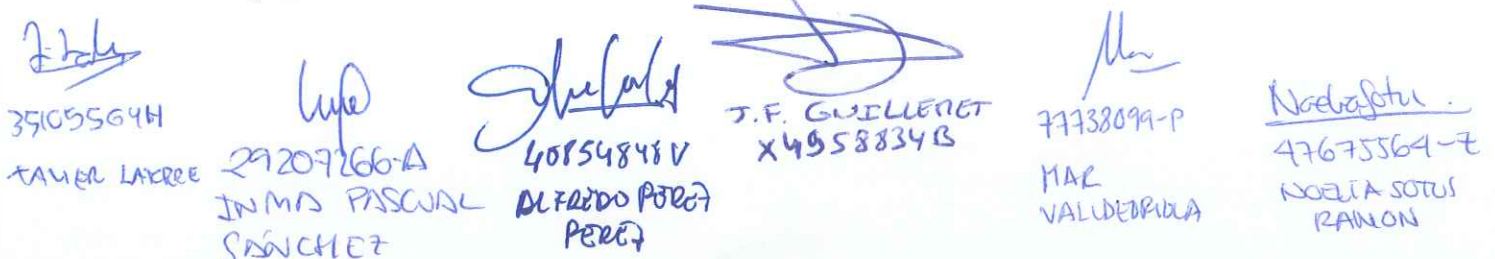 35105564H
XAVIER LAYRRE
29207266-A
INMA PASCUAL
SÁNCHEZ
40854848V
ALFREDO PEREZ
PEREZ
J.F. GUILLEMET
X4958834B
77738099-P
MAR
VALLDEORIOLA
Noeliasotus.
47675564-Z
NOELIA SOTUS
RAMON